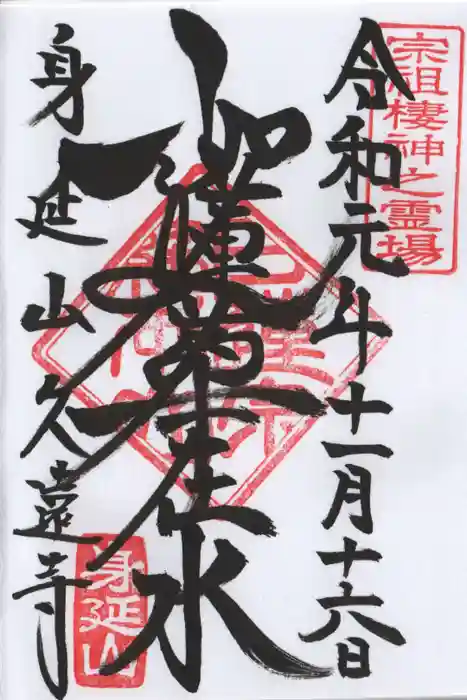 宗祖棲神之霊場
令和元年十一月十六日
如蓮華在水
身延山久遠寺
身延山